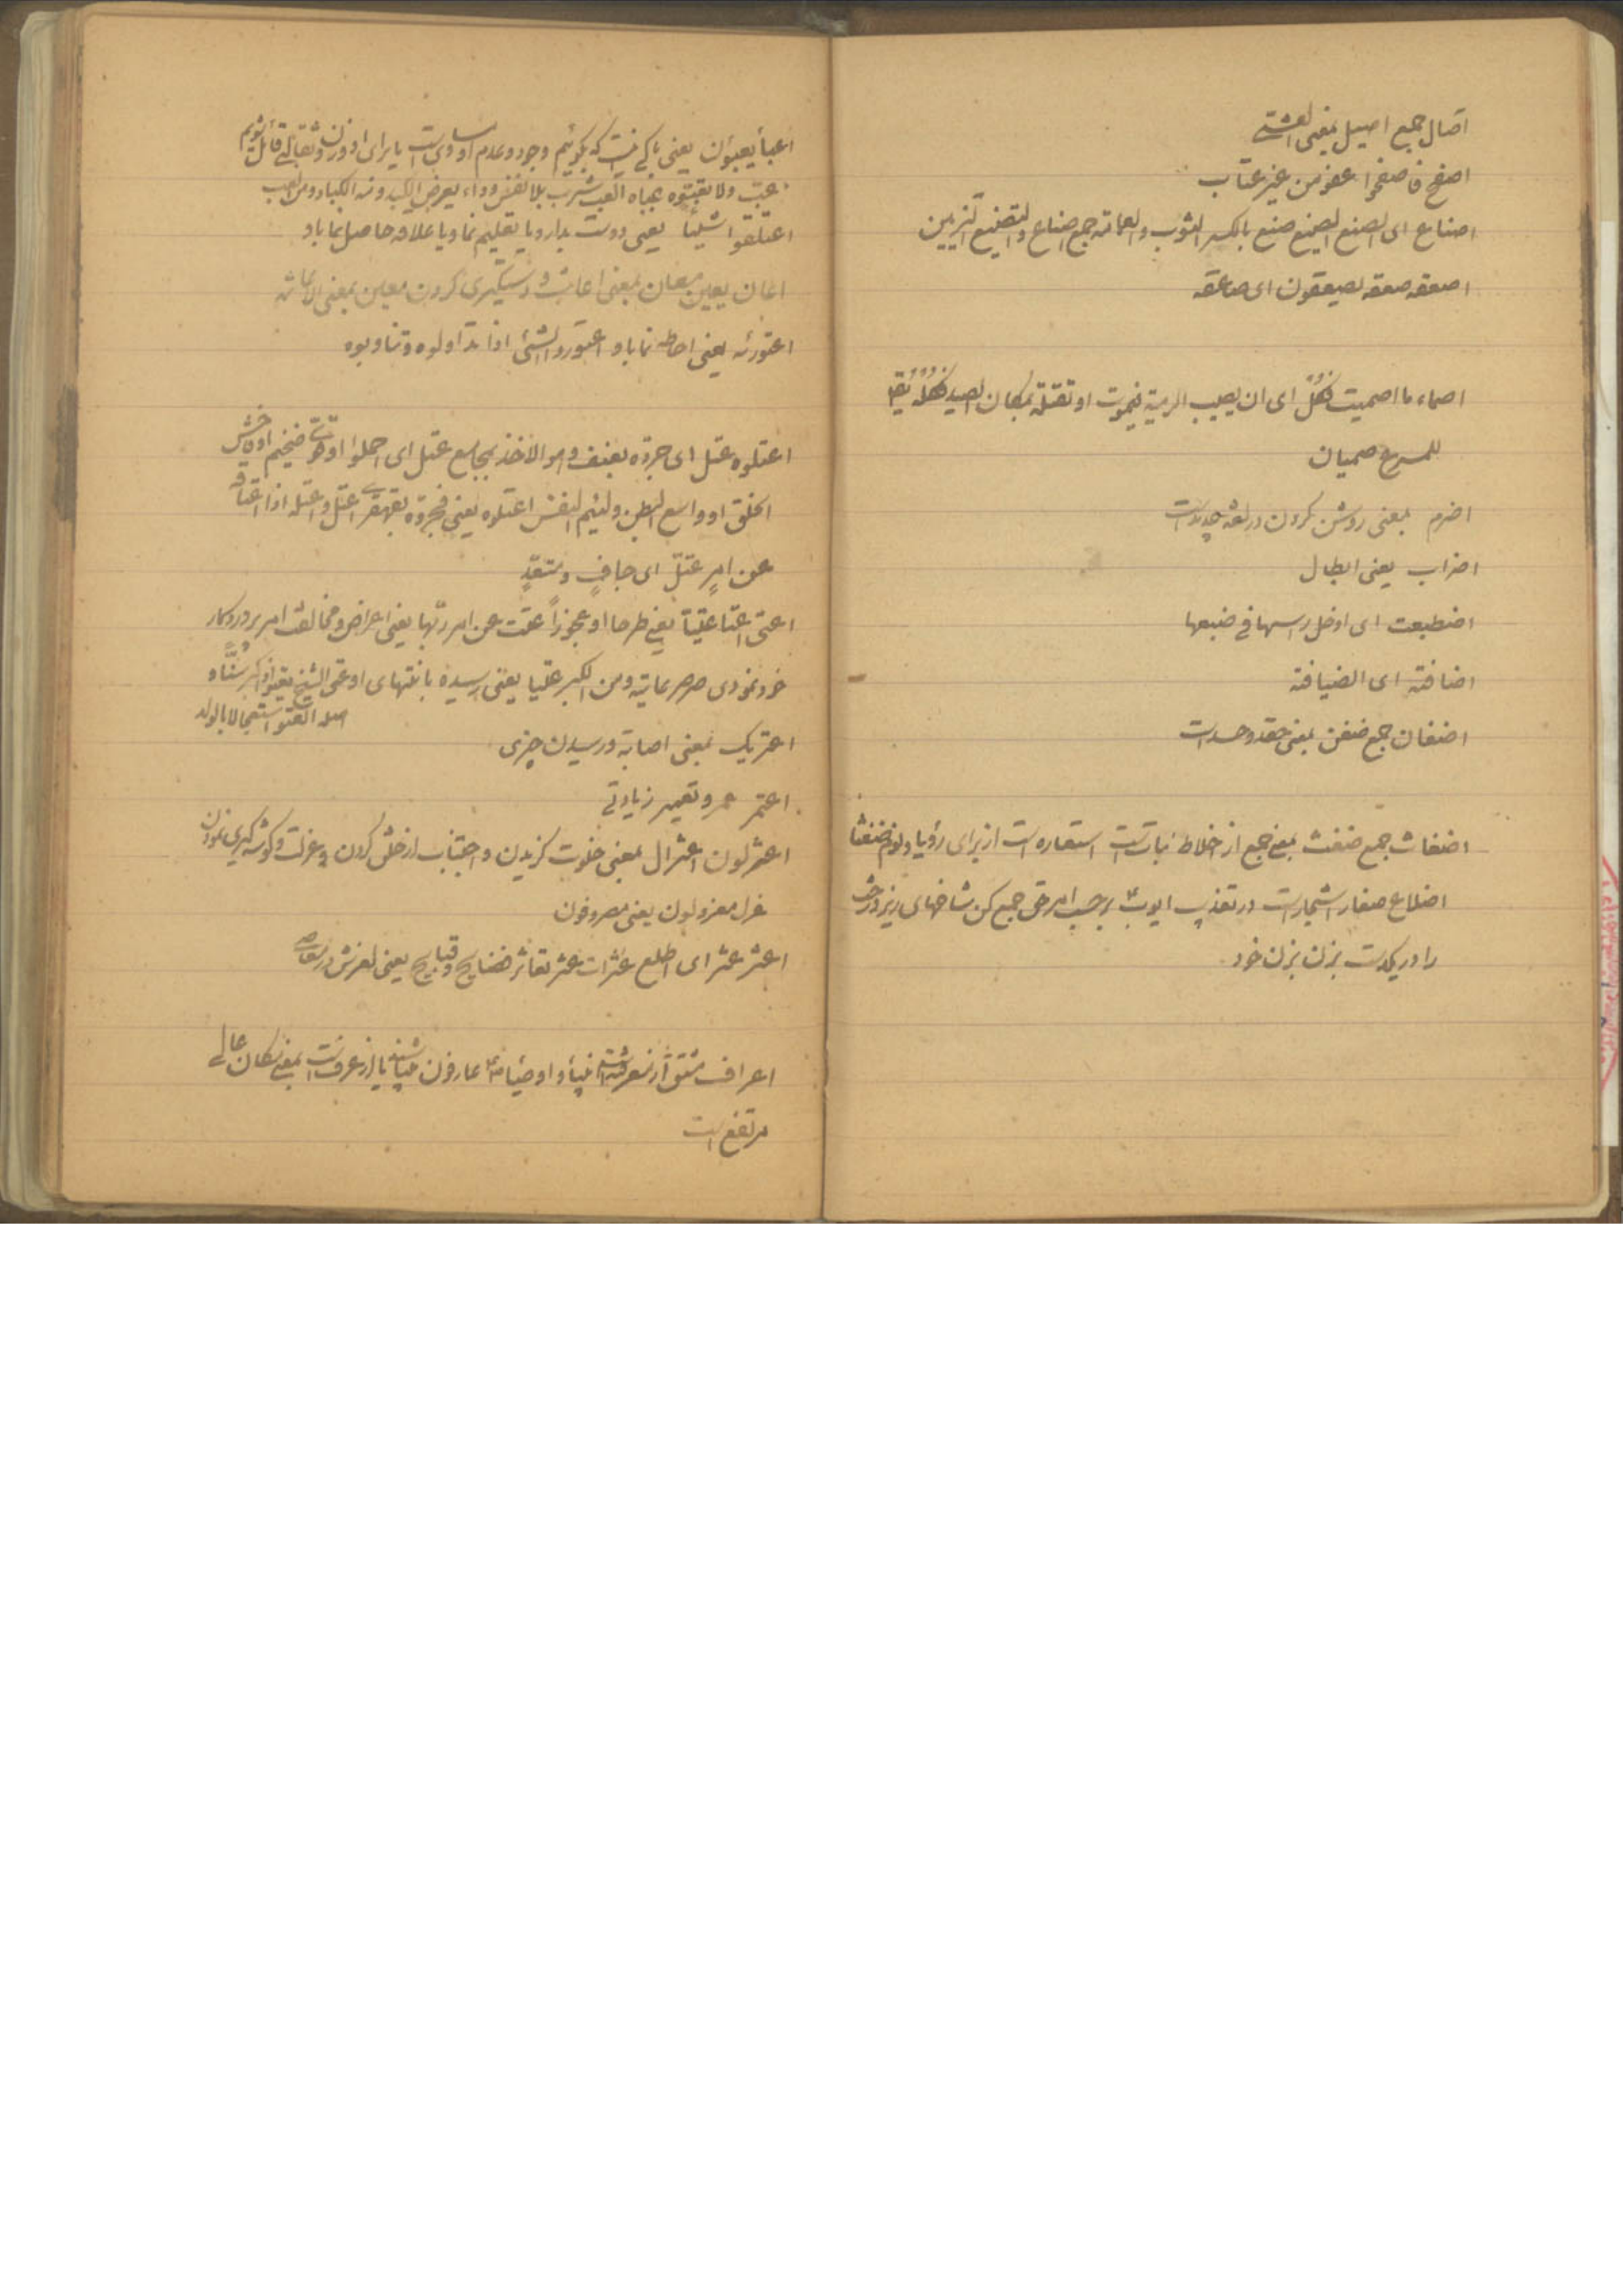 آصال جمع اصیل بمعنی العشی
اصفح فاصفحوا عفو من غیر عتاب
اصناع ای الصنع الصنیع صنع بالکسر الثوب والعمامة جمع اصناع والتصنیع التزیین
اصعقه صعقه یصعقون ای صاعقه
اصماء ما اصمیت فکل ای ان یصیب الرمیة فیموت او تقتله بمکان الصید فکله
للمسرع صمیان
اضرم بمعنی روشن کردن در لغة جدید است
اضراب یعنی ابطال
اضطبعت ای ادخل راسها فی ضبعها
اضافته ای الضیافة
اضغان جمع ضغن بمعنی حقد و حسد است
اضغاث جمع ضغث بمعنی جمع از خلاط نباتست استعاره است از برای رؤیا و لو ضغثا
اضلاع صغار اشجار است در تعذیب ایوب ع برحسب امر حق جمع کن شاخهای ریز درخت
را در یکدست بزن بزن خود
اعبأ یعبؤن یعنی باکی نیست که بگوئیم وجود و عدم او مساویست یا برای او وزن و ثقالتی قائل شویم
عبّ ولا تعبّوه عباه العب شرب بلا تنفس وداء یعرض الکبد ومنه الکباد ومن العب
اعتلقوا شیئا یعنی دوست بدارد یا تعلیم نماد یا علاقه حاصل نماید
اعان یعین معان بمعنی اعانت و دستگیری کردن معین بمعنی الاعانة
اعتورته یعنی احاطه نماید و اعتوروا الشئ اذا تداولوه وتناوبوه
اعتلوه عتل ای جرّوه بعنف وهو الاخذ بمجامع عتل ای احملوا او ضخیم او وحش
الخلق او واسع البطن ولئیم النفس اعتلوه یعنی فجرّوه بقهر
عن امرٍ عتلّ ای جافٍ ومتعدٍ
اعتی اعتا عتیّا یعنی طرحا او عجوزاً عتت عن امر ربّها یعنی اعراض و مخالفت امر پروردکار
خود نمودی صرصر عاتیة ومن الکبر عتیا یعنی رسیده بانتهای او عتی الشیخ یعتو اذا کبر سنّاً و
اصله العتو استعجالا بالولد
اعتریک بمعنی اصابة و رسیدن چیزی
اعتمر عمر و تعمیر زیادتی
اعتزلون اعتزال بمعنی خلوت گزیدن و اجتناب از خلق کردن و عزلت و کوشه کیری نمودن
عزل معزولون یعنی مصروفون
اعثر عثر ای اطلع عثرات عثر تعاثر فضایح و قبایح یعنی لغزش در معاصی
اعراف مشتق از معرفتست انبیاء و اوصیاء عارفون یا از عرف است بمعنی مکان عالی
مرتفع است